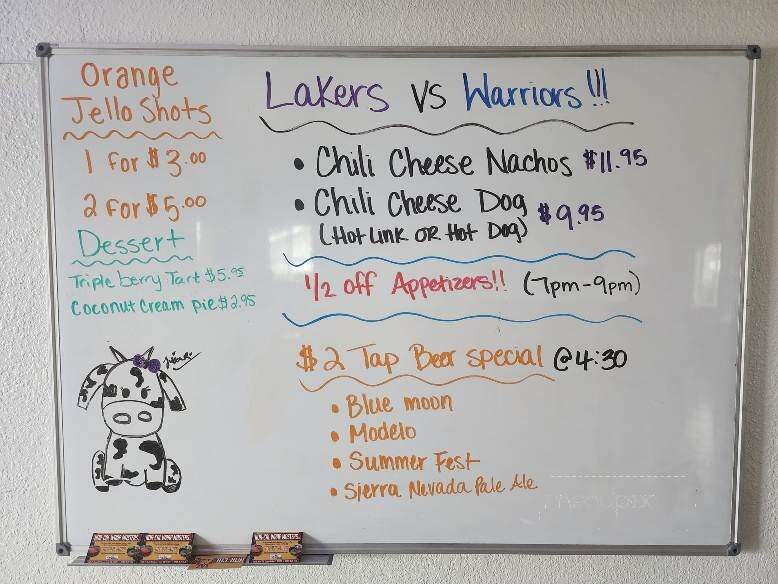 Orange
Jello Shots
1 for $3.00
2 for $5.00
Dessert
Triple berry Tart $5.95
Coconut Cream pie $2.95
Lakers vs Warriors!!!
• Chili Cheese Nachos $11.95
• Chili Cheese Dog $9.95
(Hot Link OR Hot Dog)
1/2 off Appetizers!! (7pm-9pm)
$2 Tap Beer special @4:30
• Blue moon
• Modelo
• Summer Fest
• Sierra Nevada Pale Ale